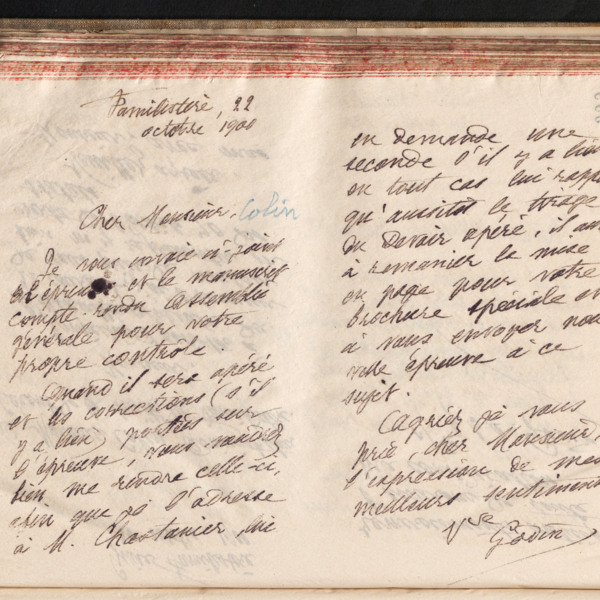 Familistère, 22
octobre 1900
Cher Monsieur, Colin
Je vous envoie ci-joint
et le manuscrit
compte-rendu assemblée
générale pour votre
propre contrôle.
Quand il sera opéré
et les corrections (s'il
y a lieu) portées sur
l'épreuve, vous voudrez
bien me rendre celle-ci,
afin que je l'adresse
à M. Chastanier, lui
en demande une
seconde s'il y a lieu
en tout cas lui
qu'aussitôt le tirage
du Devoir opéré, il
à remanier la mise
en page pour votre
brochure spéciale et
à vous envoyer
épreuve à ce
sujet.
Agréez je vous
prie, cher Monsieur,
l'expression de mes
meilleurs sentiments
Vve Godin